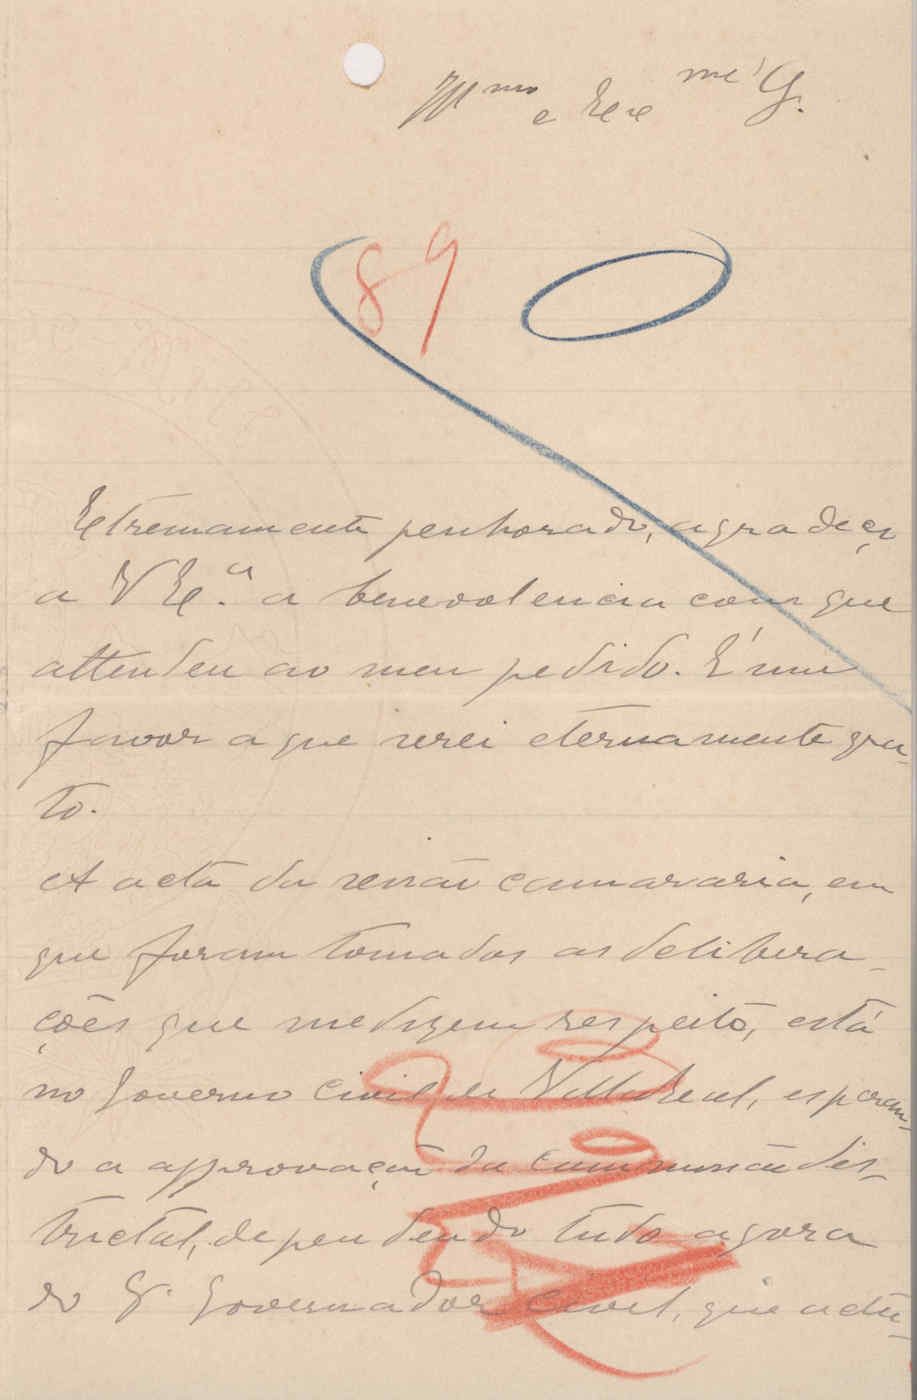 Ill.mo e Exc.mo Sr.
89
Extremamente penhorado, agradeço
a V Ex.a a benevolencia com que
attendeu ao meu pedido. É um
favor a que serei eternamente gra-
to.
A acta da sessão camararia, em
que foram tomadas as delibera-
ções que me dizem respeito, está
no Governo civil de Villa Real, esperan-
do a approvação da commissão dis-
trictal, dependendo tudo agora
do Sr. Governador Civil, que actu-